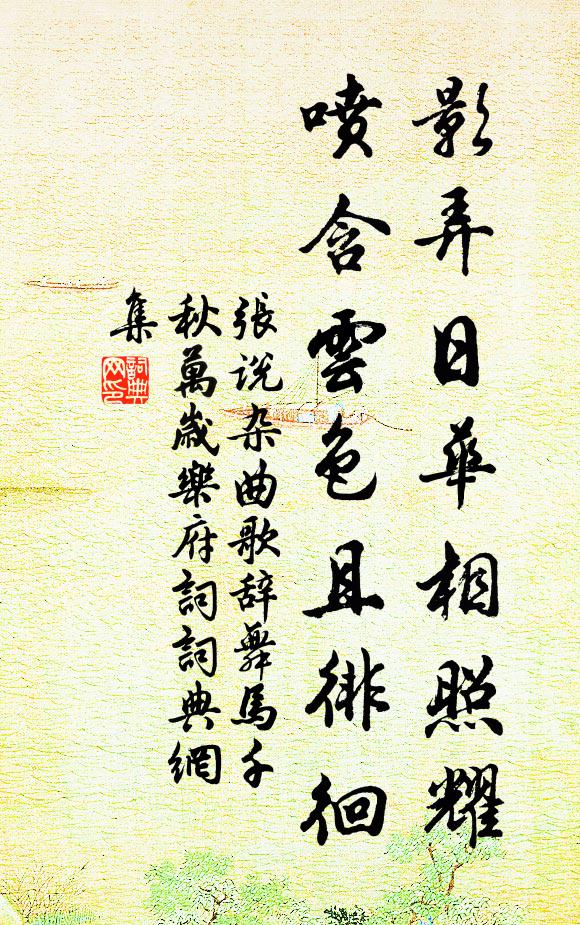 影弄日華相照耀
噴含雲色且徘徊
張説杂曲歌辞舞馬千
秋萬歲樂府詞詞典網
集
詞典
网印